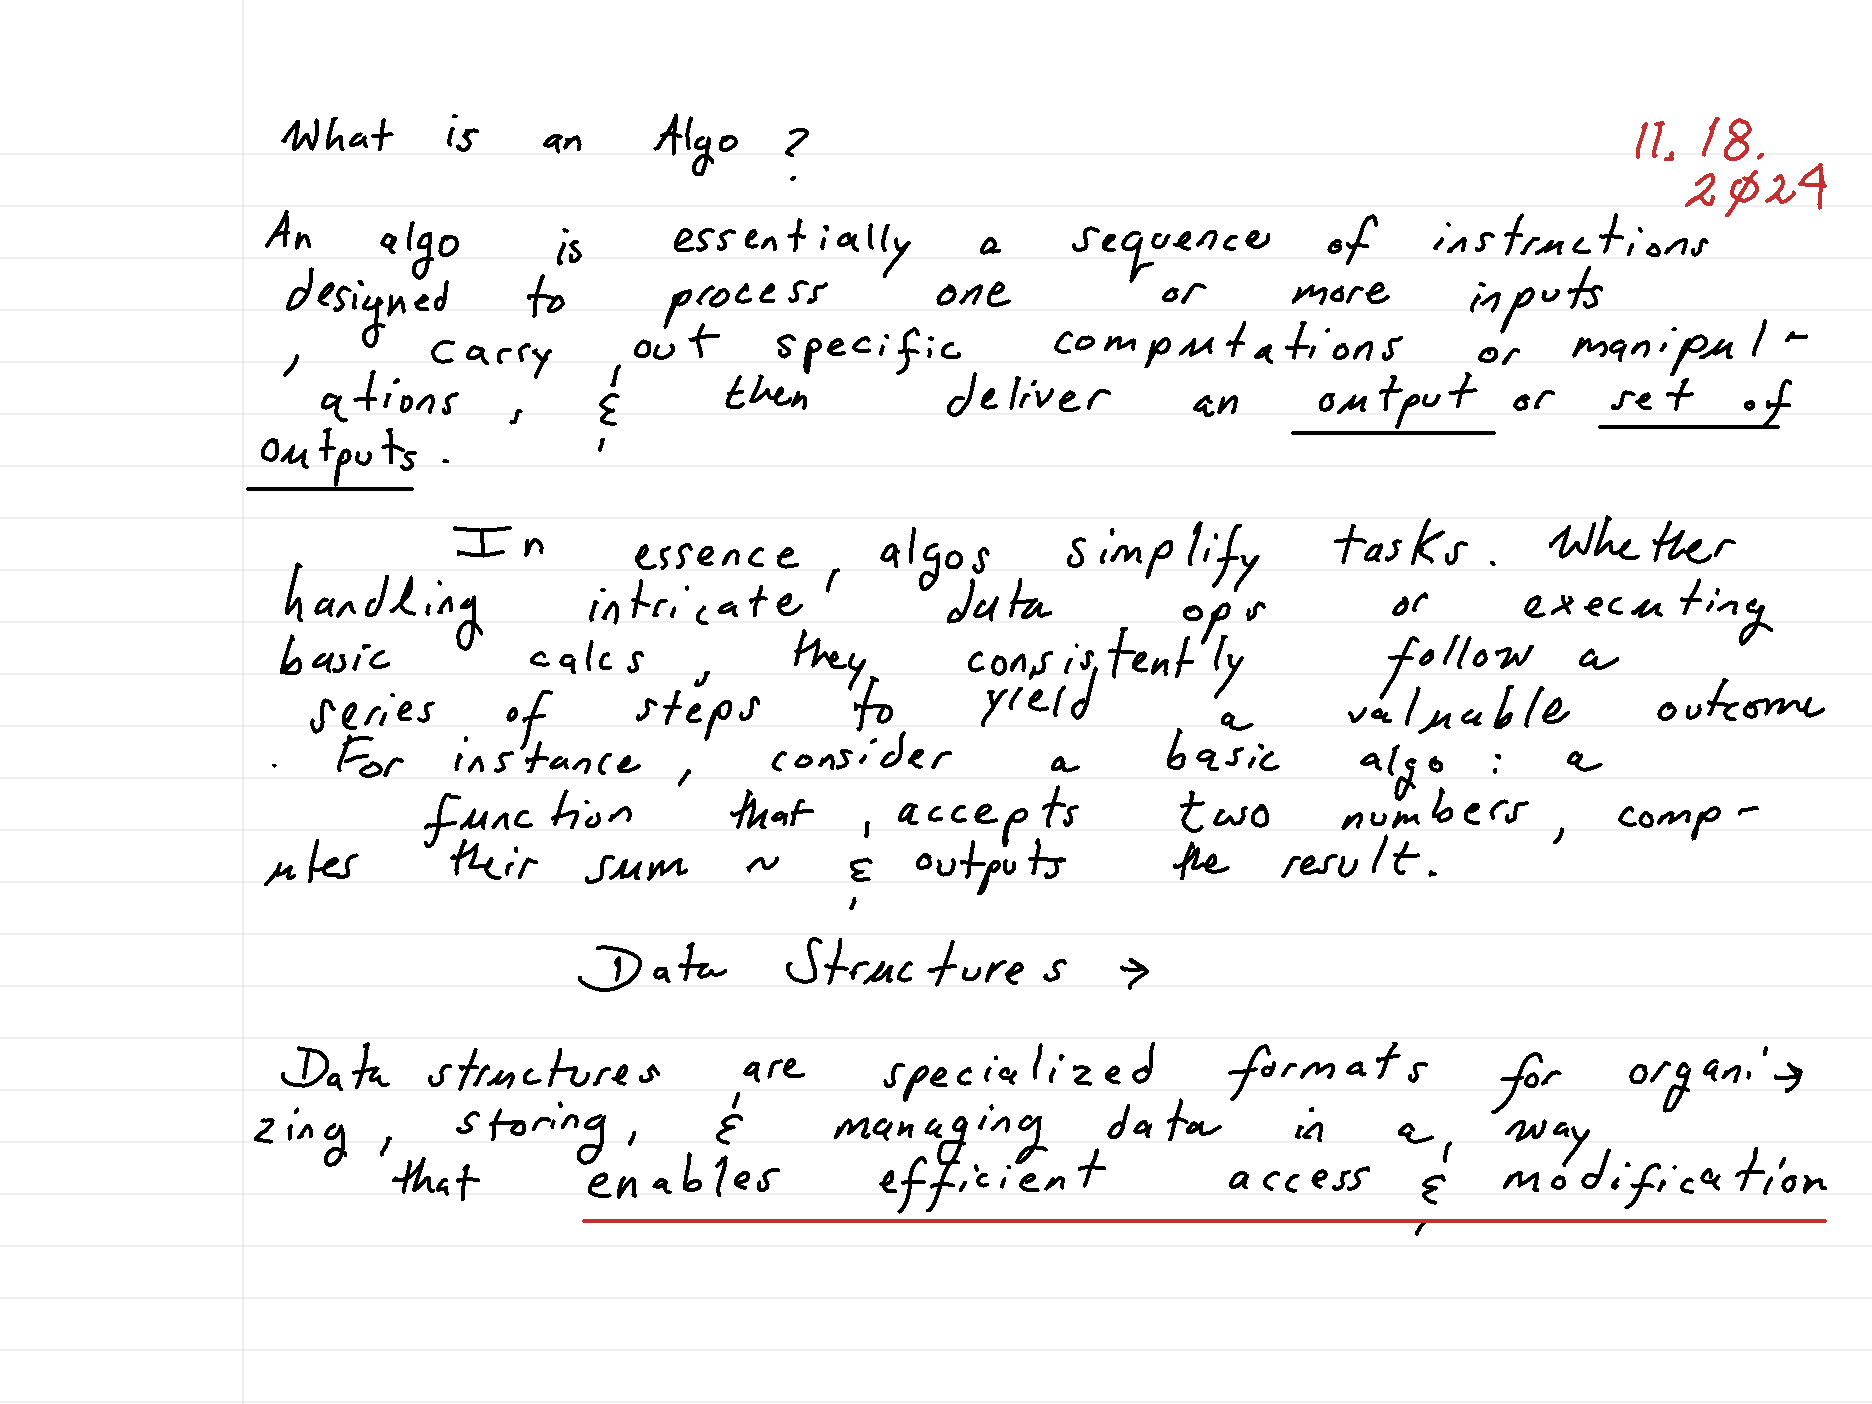 What is an Algo ?
11. 18.
2024
An algo is essentially a sequence of instructions
designed to process one or more inputs
, carry out specific computations or manipul-
ations, & then deliver an output or set of
outputs.
In essence, algos simplify tasks. Whether
handling intricate data ops or executing
basic calcs, they consistently follow a
series of steps to yield a valuable outcome
. For instance, consider a basic algo : a
function that accepts two numbers, comp-
utes their sum ~ & outputs the result.
Data Structures →
Data structures are specialized formats for organi→
zing, storing, & managing data in a way
that enables efficient access & modification